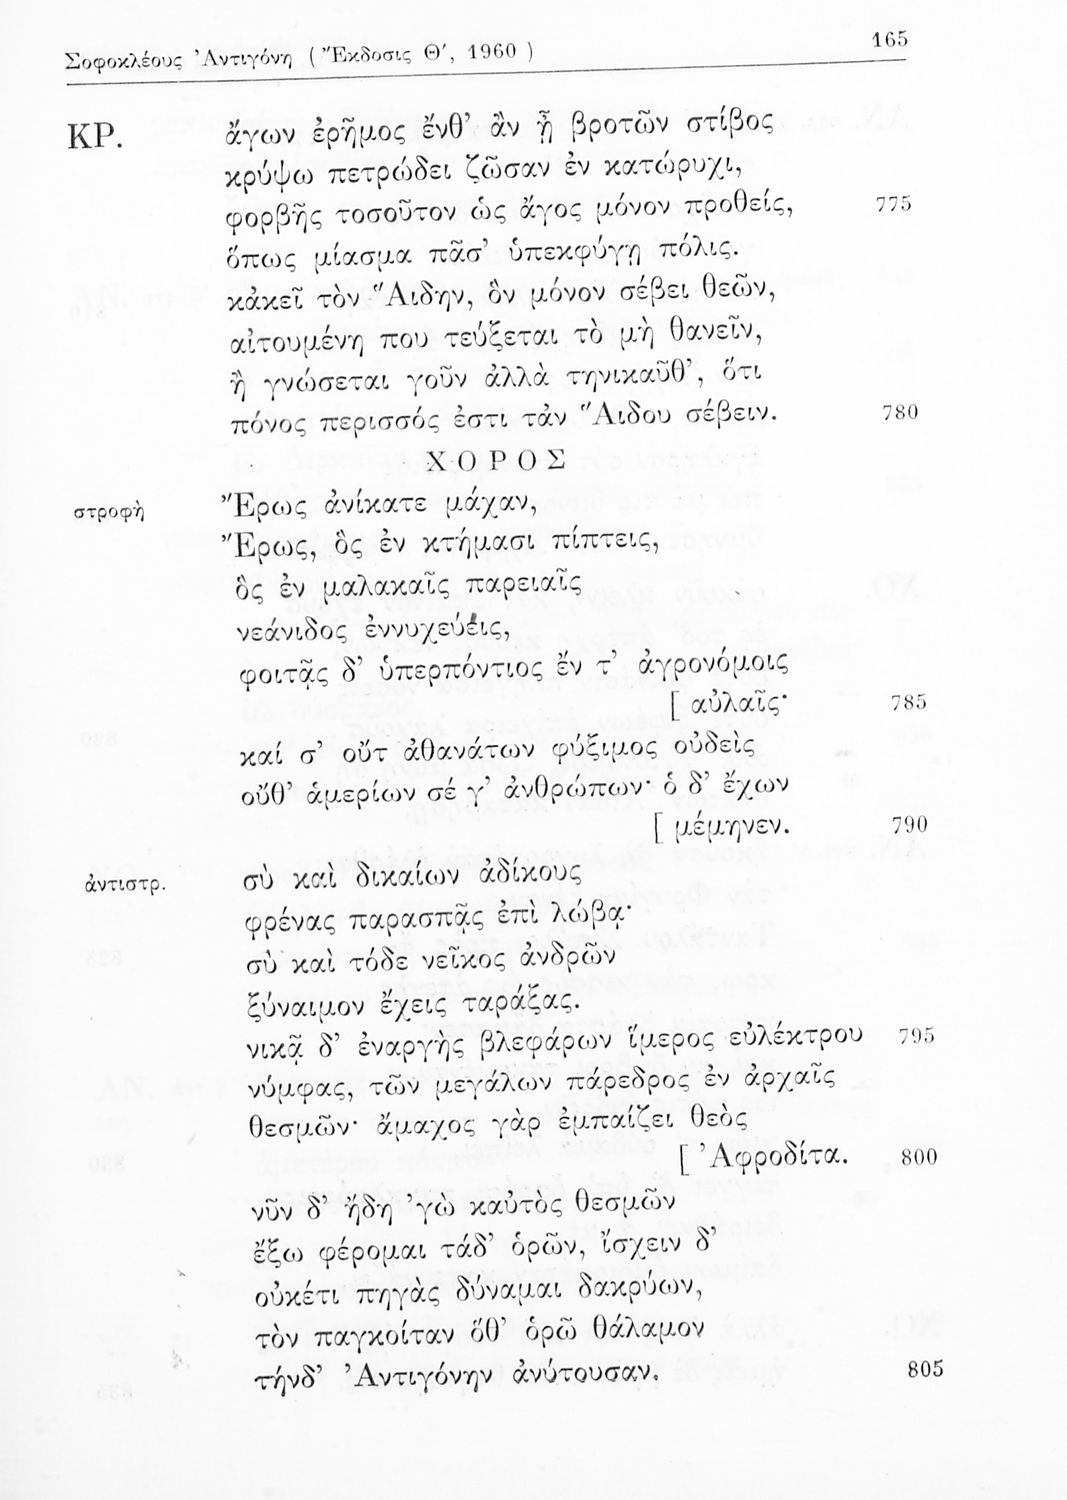 Σοφοκλέους Ἀντιγόνη ( Ἔκδοσις Θ', 1960 ) 165
ΚΡ. ἄγων ἐρῆμος ἔνθ' ἂν ᾖ βροτῶν στίβος
κρύψω πετρώδει ζῶσαν ἐν κατώρυχι,
φορβῆς τοσοῦτον ὡς ἄγος μόνον προθείς, 775
ὅπως μίασμα πᾶσ' ὑπεκφύγῃ πόλις.
κἀκεῖ τὸν Ἅιδην, ὃν μόνον σέβει θεῶν,
αἰτουμένη που τεύξεται τὸ μὴ θανεῖν,
ἢ γνώσεται γοῦν ἀλλὰ τηνικαῦθ', ὅτι
πόνος περισσός ἐστι τἀν Ἅιδου σέβειν. 780
ΧΟΡΟΣ
στροφὴ Ἔρως ἀνίκατε μάχαν,
Ἔρως, ὃς ἐν κτήμασι πίπτεις,
ὃς ἐν μαλακαῖς παρειαῖς
νεάνιδος ἐννυχεύεις,
φοιτᾷς δ' ὑπερπόντιος ἔν τ' ἀγρονόμοις
[ αὐλαῖς· 785
καί σ' οὔτ ἀθανάτων φύξιμος οὐδεὶς
οὔθ' ἁμερίων σέ γ' ἀνθρώπων· ὁ δ' ἔχων
[ μέμηνεν. 790
ἀντιστρ. σὺ καὶ δικαίων ἀδίκους
φρένας παρασπᾷς ἐπὶ λώβᾳ·
σὺ καὶ τόδε νεῖκος ἀνδρῶν
ξύναιμον ἔχεις ταράξας.
νικᾷ δ' ἐναργὴς βλεφάρων ἵμερος εὐλέκτρου 795
νύμφας, τῶν μεγάλων πάρεδρος ἐν ἀρχαῖς
θεσμῶν· ἄμαχος γὰρ ἐμπαίζει θεὸς
[ Ἀφροδίτα. 800
νῦν δ' ἤδη 'γὼ καὐτὸς θεσμῶν
ἔξω φέρομαι τάδ' ὁρῶν, ἴσχειν δ'
οὐκέτι πηγὰς δύναμαι δακρύων,
τὸν παγκοίταν ὅθ' ὁρῶ θάλαμον
τήνδ' Ἀντιγόνην ἀνύτουσαν. 805